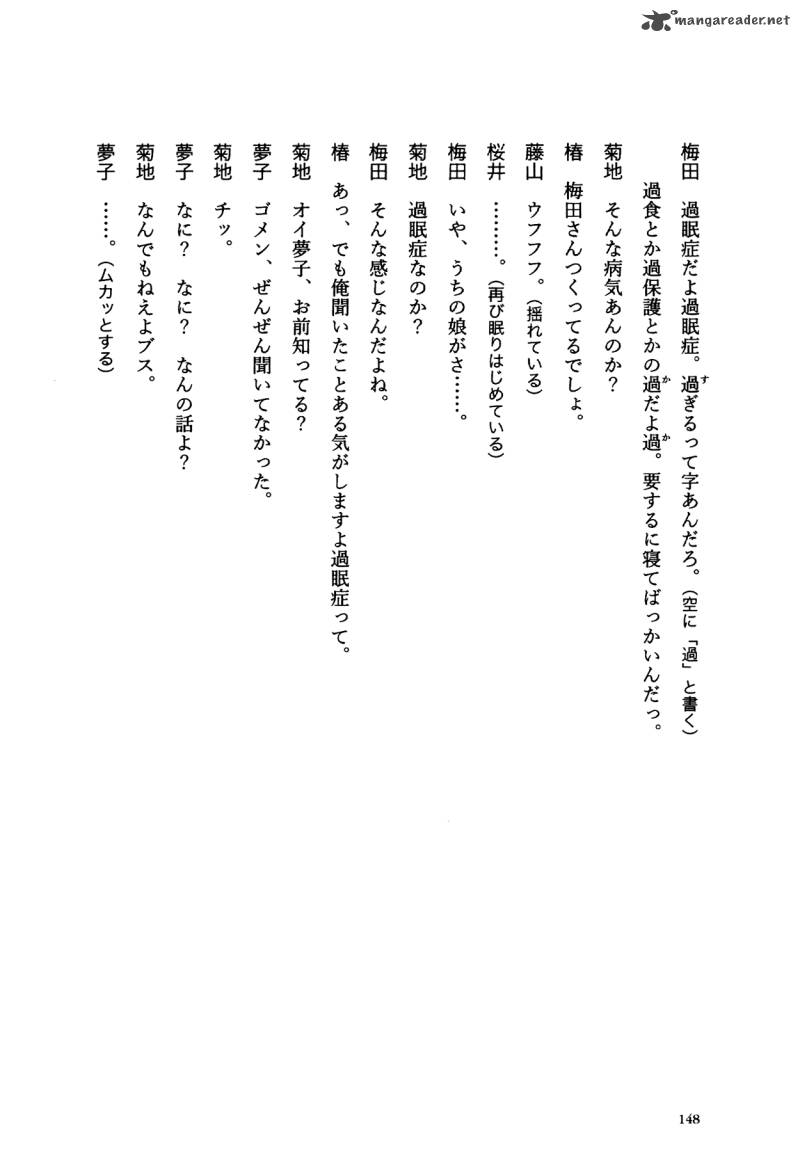 mangareader.net
梅田　過眠症だよ過眠症。過ぎるって字あんだろ。（空に「過」と書く）
過食とか過保護とかの過だよ過。要するに寝てばっかいんだっ。
菊地　そんな病気あんのか？
椿　梅田さんつくってるでしょ。
藤山　ウフフフ。（揺れている）
桜井　………。（再び眠りはじめている）
梅田　いや、うちの娘がさ……。
菊地　過眠症なのか？
梅田　そんな感じなんだよね。
椿　あっ、でも俺聞いたことある気がしますよ過眠症って。
菊地　オイ夢子、お前知ってる？
夢子　ゴメン、ぜんぜん聞いてなかった。
菊地　チッ。
夢子　なに？　なに？　なんの話よ？
菊地　なんでもねえよブス。
夢子　……。（ムカッとする）
148